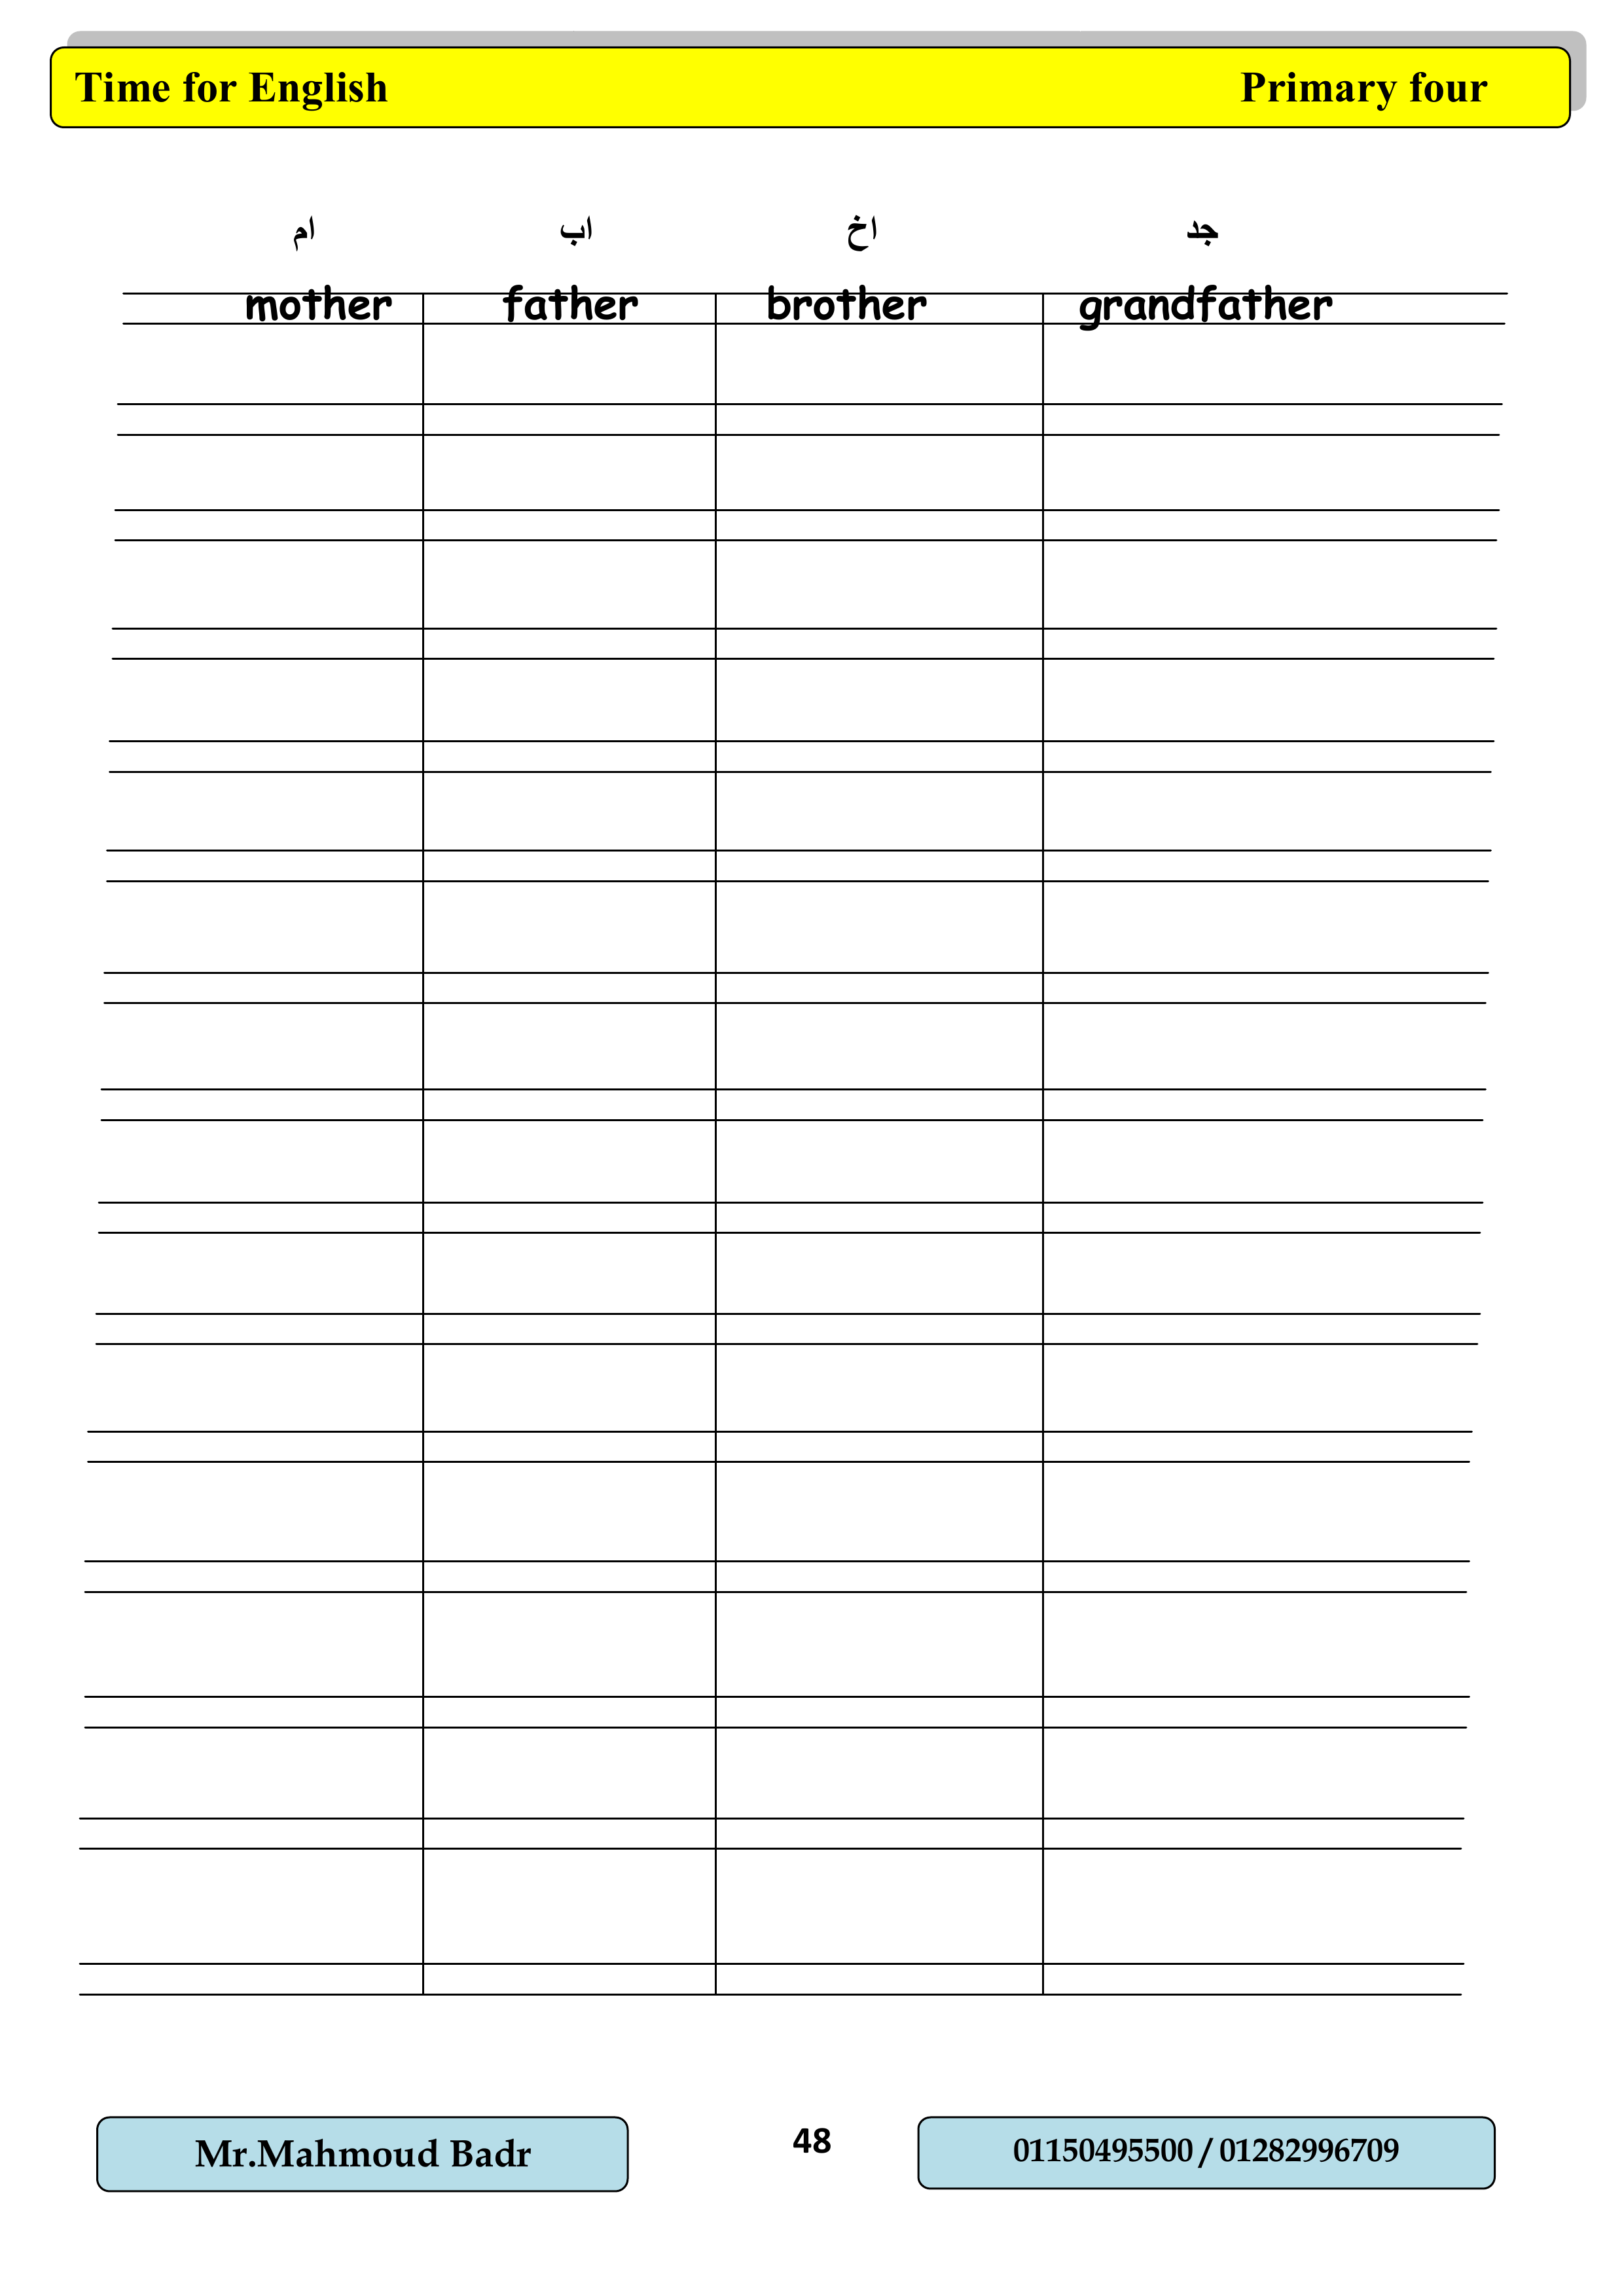 Time for English Primary four
ام اب اخ جد
mother father brother grandfather
Mr.Mahmoud Badr 48 01150495500 / 01282996709